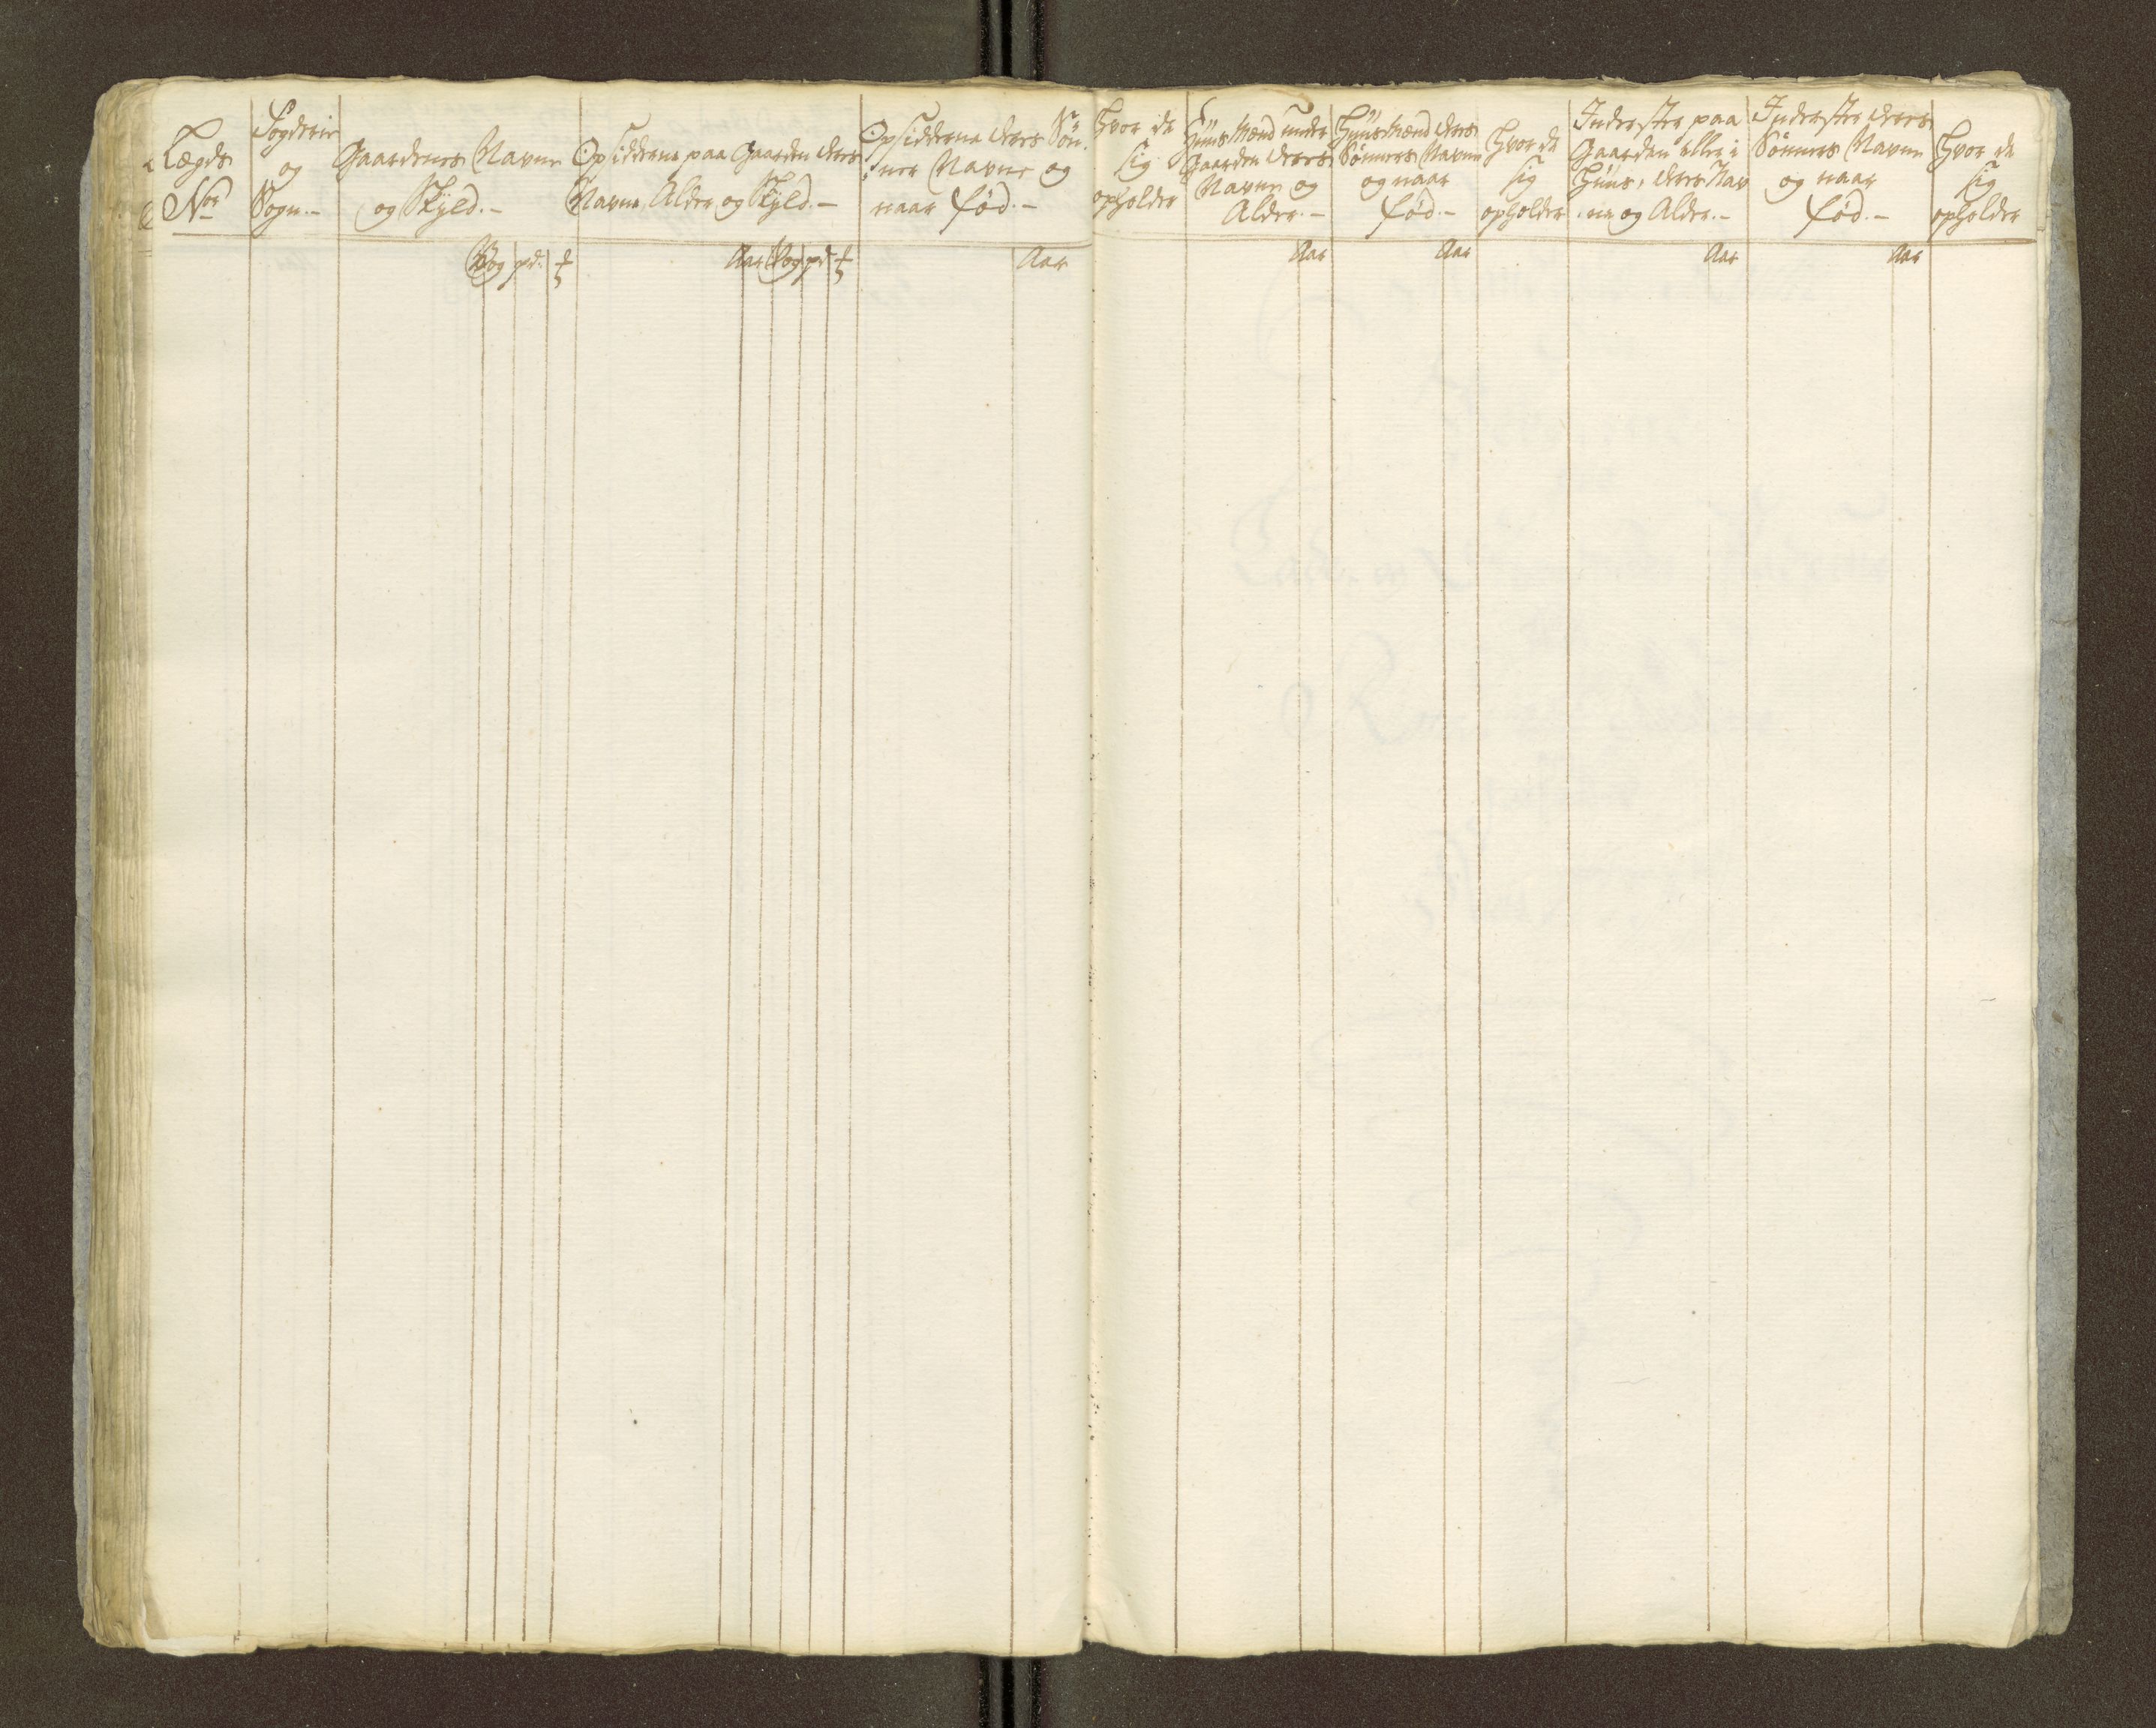 Lægds
No
Fogderie
og
Sogn.-
Gaardenes Navne
og Skyld.-
Opsiddene paa Gaarden deres
Navne, Alder og Skyld.-
Opsiddene deres Søn-
ner Navne og
naar fød.-
Hvor de
sig
opholder
Huus Mænd under
Gaarden deres
Navne og
Alder.-
Huus Mænd deres
Sønners Navne
og naar
fød.-
Hvor de
sig
opholder
Inderster paa
Gaarden eller i
Huus, deres Nav
ne og Alder.-
Inderster deres
Sønners Navne
og naar
fød.-
Hvor de
sig
opholder
Vog pd.
Aar Vog pd
Aar
Aar
Aar
Aar
Aar